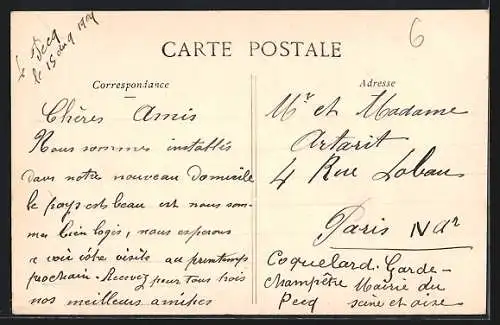 Le Pecq
le 15 [
6
CARTE POSTALE
Correspondance
Chères Amis
Nous sommes installés
dans notre nouveau Domicile
le pays est beau ert nous som-
mes bien logés, nous esperons
a voir vôtre visite au printemps
prochain. Recevez pour tous trois
nos meilleurs amities
Adresse
Mr et Madame
Artarit
4 Rue Lobau
Paris IV ar
Coquelard. Garde-
Champêtre Mairie du
Pecq seine et oise